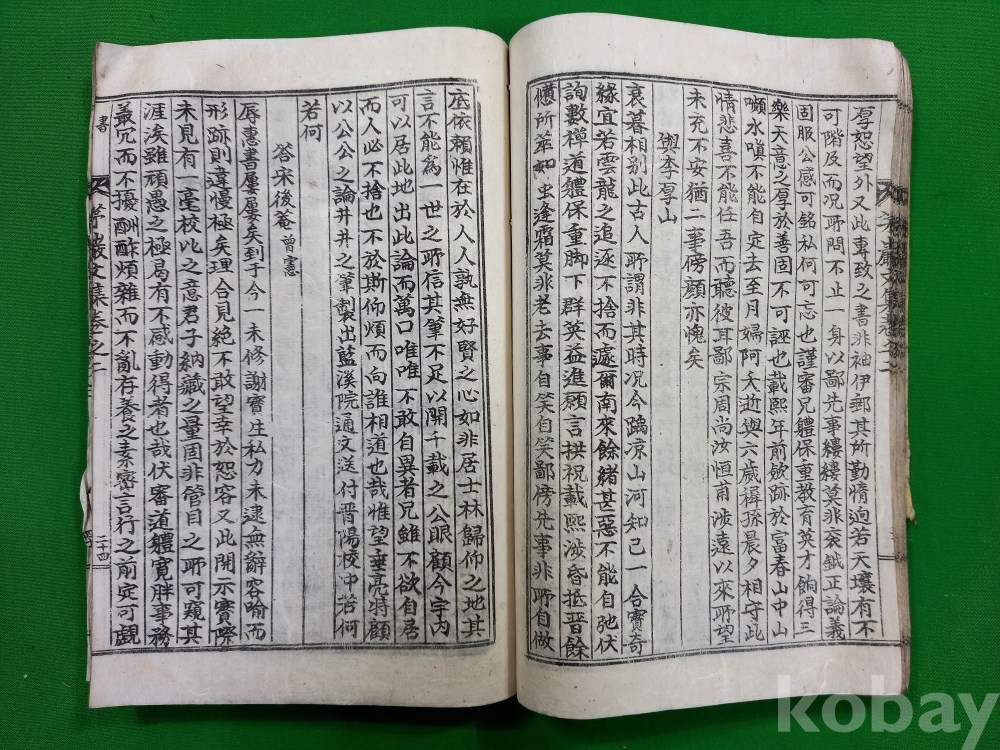 厚恕望外又此專致之書非袖伊郵其所勤情逈若天壤有不
可階及而况所問不止一身以鄙先事縷縷莫非衮鉞正論義
固服公感可銘私何可忘也謹審兄軆保重教育英才餉得三
樂天意之厚於善固不可誣也載熙年前飲跡於富春山中山
嗽水嗔不能自定去至月婦阿夭逝與六歲穉孫晨夕相守此
情悲喜不能任吾而聽彼耳鄙宗周尚汝恒甫涉遠以來所望
未充不安猶二事傍顔亦愧矣
與李厚山
衰暮相别此古人所謂非其時况今踽凉山河知己一合寶奇
緣宜若雲龍之追逐不捨而遽爾南來餘緖甚惡不能自弛伏
詢數襌道軆保重脚下群英益進願言拱祝載熙涉昏抵晋餘
憊所萃如虫逢霜莫非老去事自笑自笑鄙傍先事非所自做
底依賴惟在於人人孰無好賢之心如非居士林歸仰之地其
言不能爲一世之所信其筆不足以開千載之公眼顧今宇内
可以居此地出此論而萬口唯唯不敢自異者兄雖不欲自居
而人必不捨也不於斯仰煩而向誰相道也哉惟望垂亮特顧
以公公之論井井之筆製出藍溪院通文送付晋陽校中若何
若何
答宋後菴 曾憲
辱惠書屢屢矣到于今一未修謝寶生私力未逮無辭容喻而
形跡則違慢極矣理合見絶不敢望幸於恕容又此開示實際
未見有一毫校此之意君子納藏之量固非管目之所可窺其
涯涘雖頑愚之極曷有不感動得者也哉伏審道軆寬胖事務
叢冗而不擾酬酢煩雜而不亂存養之素密言行之前定可覷
書
文集卷之二
二十四
kobay